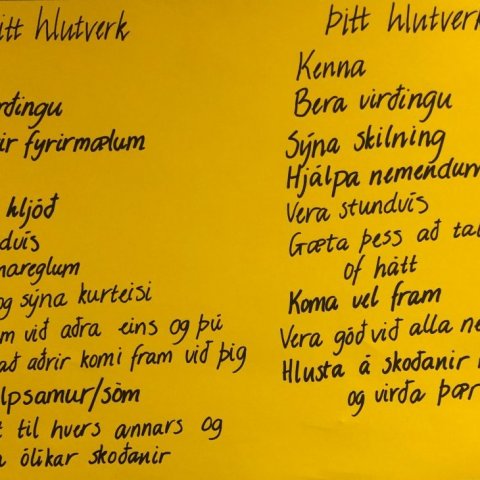 itt hlutverk
rðingu
ir fyrirmælum
hljóð
dvís
nareglum
og sýna kurteisi
m við aðra eins og þú
að aðrir komi fram við þig
lpsamur/söm
t til hvers annars og
ólíkar skoðanir
Þitt hlutverk
Kenna
Bera virðingu
Sýna skilning
Hjálpa nemendum
Vera stundvís
Gæta þess að tal
of hátt
Koma vel fram
Vera góð við alla ne
Hlusta á skoðanir
og virða þær